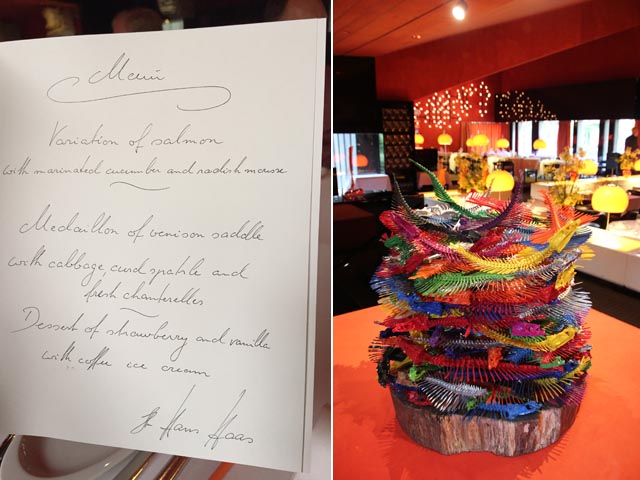 Menü
Variation of salmon
with marinated cucumber and radish mousse
Medaillon of venison saddle
with cabbage, curd spätzle and
fresh chanterelles
Dessert of strawberry and vanilla
with coffee ice cream
Hans Haas